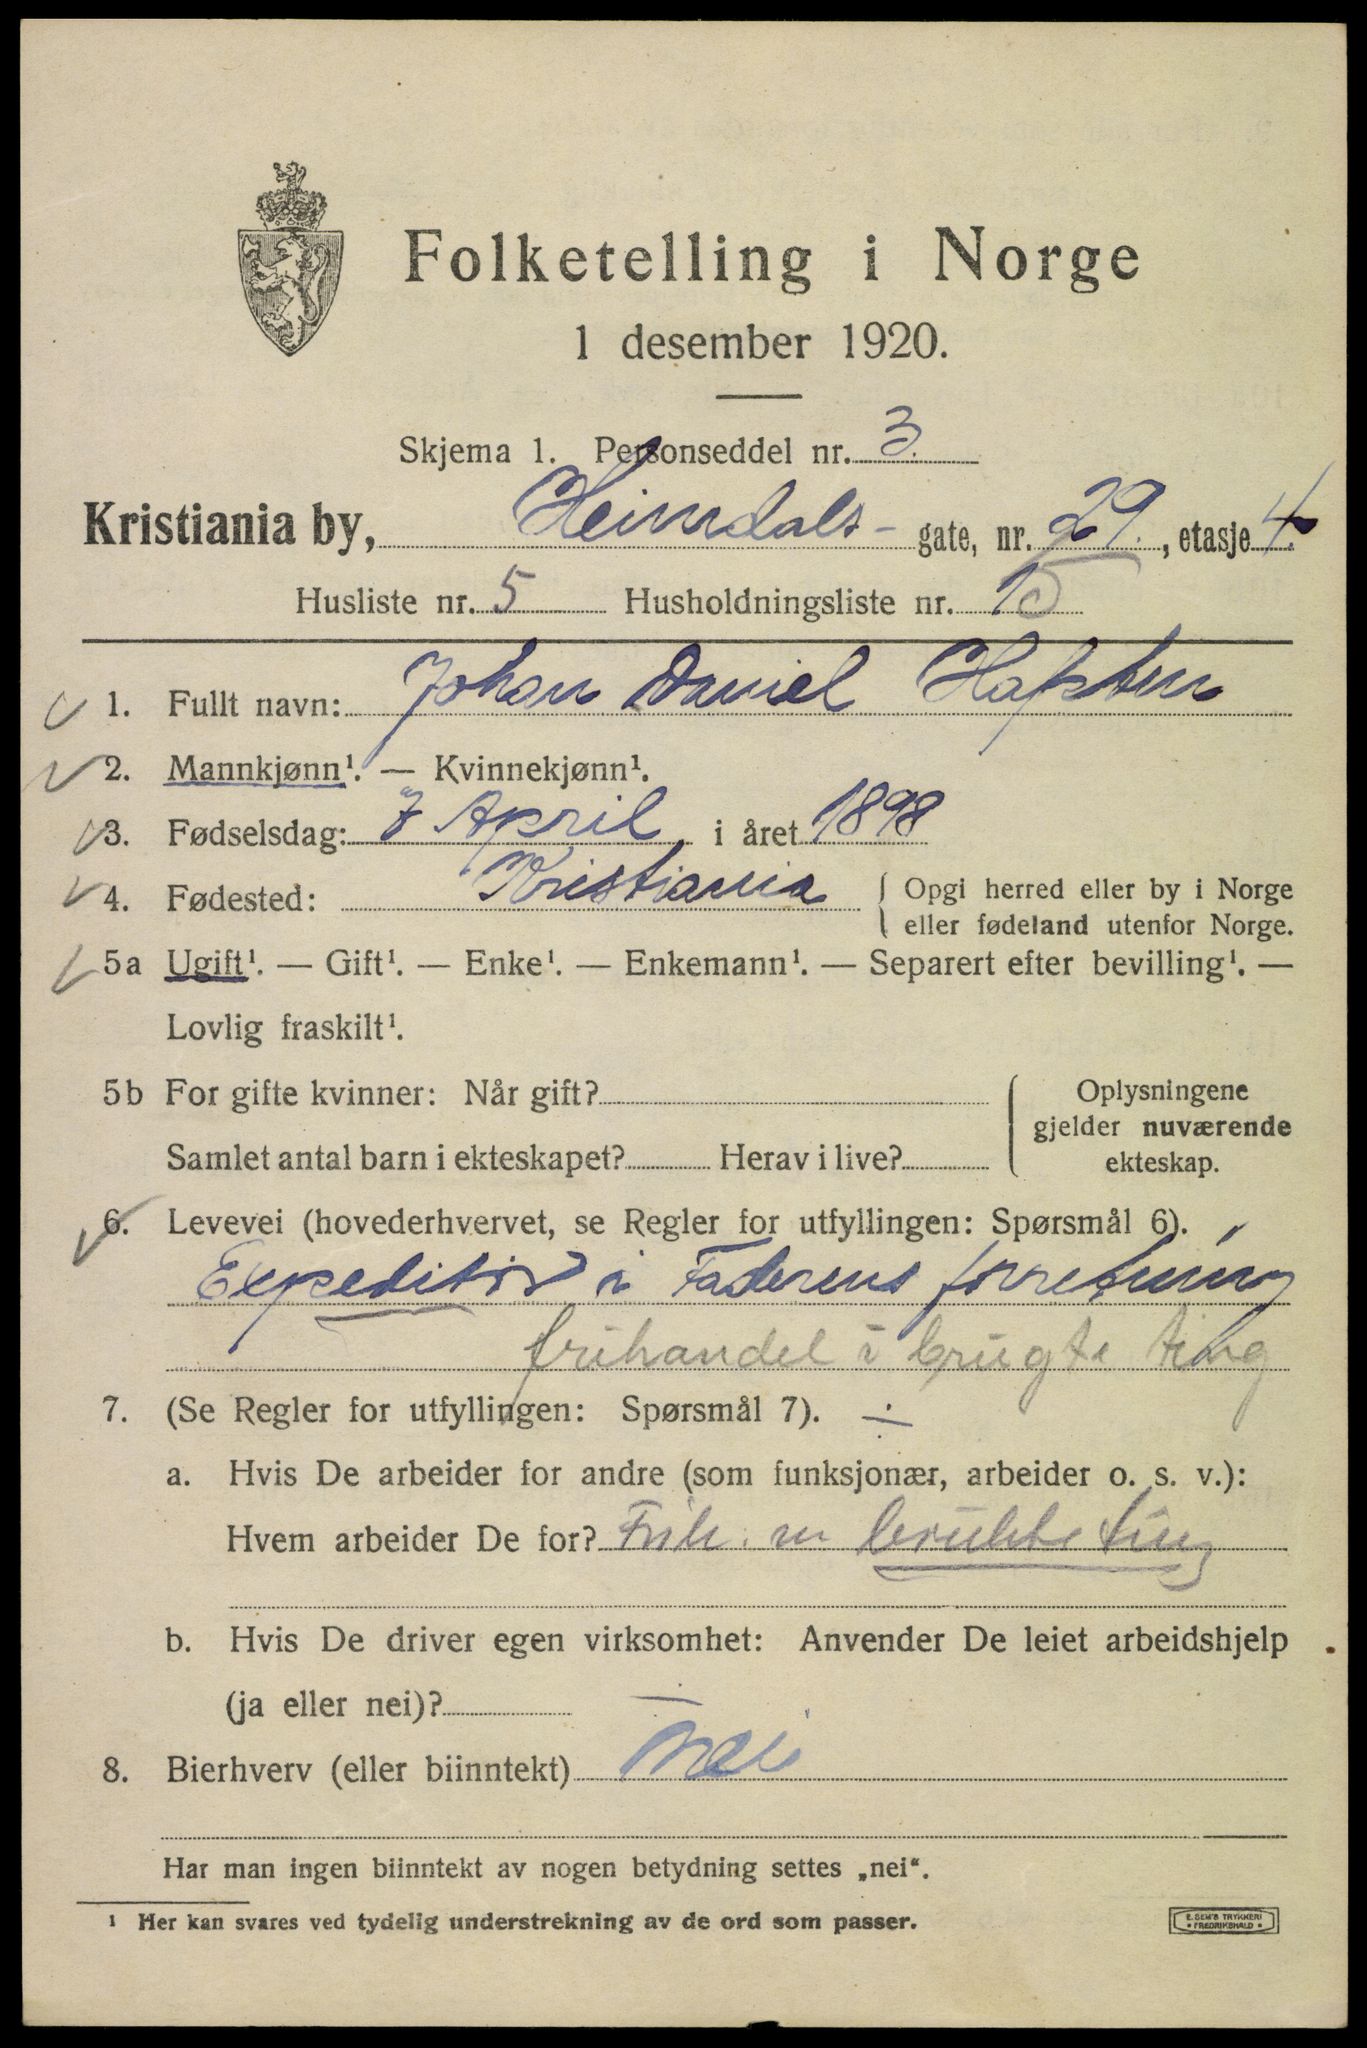 Folketelling i Norge
1 desember 1920.
Skjema 1. Personseddel nr. 3.
Kristiania by, Heimdals- gate, nr. 29., etasje 4.
Husliste nr. 5 Husholdningsliste nr. 15
1. Fullt navn: Johan Daniel Hafsten
2. Mannkjønn¹. — Kvinnekjønn¹.
3. Fødselsdag: 7 April i året 1898
4. Fødested: Kristiania { Opgi herred eller by i Norge
eller fødeland utenfor Norge.
5a Ugift¹. — Gift¹. — Enke¹. — Enkemann¹. — Separert efter bevilling¹. —
Lovlig fraskilt¹.
5b For gifte kvinner: Når gift? Oplysningene
gjelder nuværende
Samlet antal barn i ekteskapet? Herav i live? ekteskap.
6. Levevei (hovederhvervet, se Regler for utfyllingen: Spørsmål 6).
Expeditør i Faderens forretning
frihandel i brugte ting
7. (Se Regler for utfyllingen: Spørsmål 7). ÷
a. Hvis De arbeider for andre (som funksjonær, arbeider o. s. v.):
Hvem arbeider De for? Frih. m brukte ting
b. Hvis De driver egen virksomhet: Anvender De leiet arbeidshjelp
(ja eller nei)?
8. Bierhverv (eller biinntekt) Nei
Har man ingen biinntekt av nogen betydning settes „nei“.
¹ Her kan svares ved tydelig understrekning av de ord som passer.
E. SEM'S TRYKKERI
• FREDRIKSHALD •